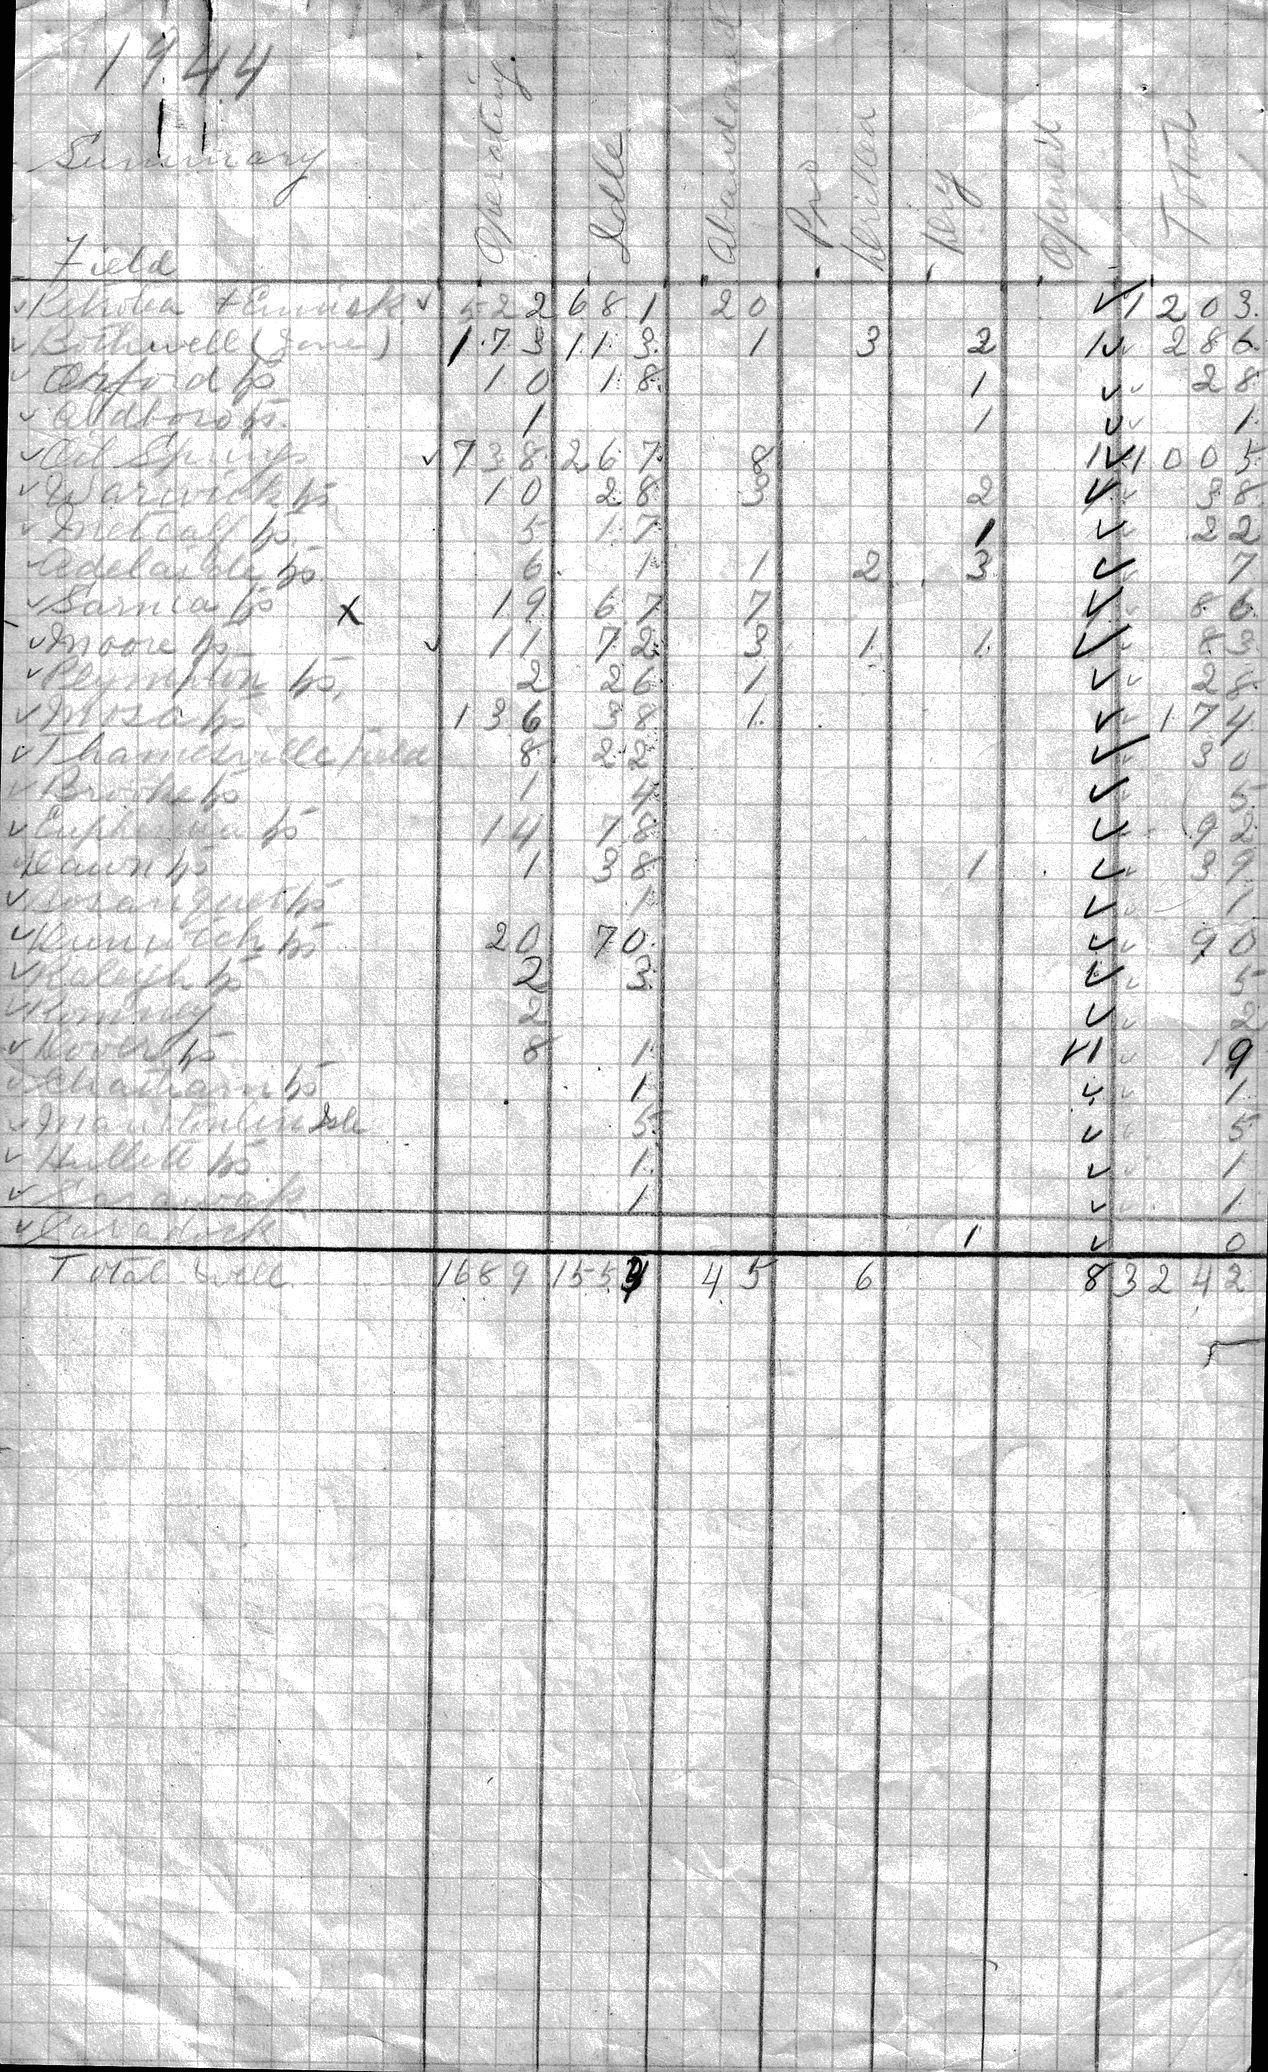 1944
Summary
Field Operating Idle Abandoned Pro Drilled Dry Opened Total
✓ Petrolia + Enniskillen ✓ 522 681 20 ✓ 1203
✓ Bothwell (Zone) 173 113 1 3 2 1 ✓ 286
✓ Orford tp 10 18 1 ✓ 28
✓ Aldboro tp. 1 1 ✓ 1
✓ Oil Springs ✓ 738 267 8 1 ✓ 1005
✓ Warwick tp 10 28 3 2 ✓ 38
✓ Metcalf tp. 5 17 1 ✓ 22
Adelaide tp. 6 1 1 2 3 ✓ 7
✓ Sarnia tp X 19 67 7 ✓ 86
✓ Moore tp ✓ 11 72 3 1 1 ✓ 83
✓ Plympton tp. 2 26 1 ✓ 28
✓ Mosa tp 136 38 1 ✓ 174
✓ Thamesville field 8 22 ✓ 30
✓ Brooke tp 1 4 ✓ 5
✓ Euphemia tp 14 78 ✓ 92
Dawn tp 1 38 1 ✓ 39
✓ Bosanquet tp 1 ✓ 1
✓ Dunwich tp 20 70 ✓ 90
✓ Raleigh tp 2 3 ✓ 5
✓ Romney 2 ✓ 2
✓ Dover tp 8 1 19
✓ Chatham tp 1 ✓ 1
✓ Manitoulin Isle 5 ✓ 5
✓ Hullett tp 1 ✓ 1
✓ 1 ✓ 1
✓ Caradock 1 ✓ 0
Total well 1689 155 45 6 8 3242
5